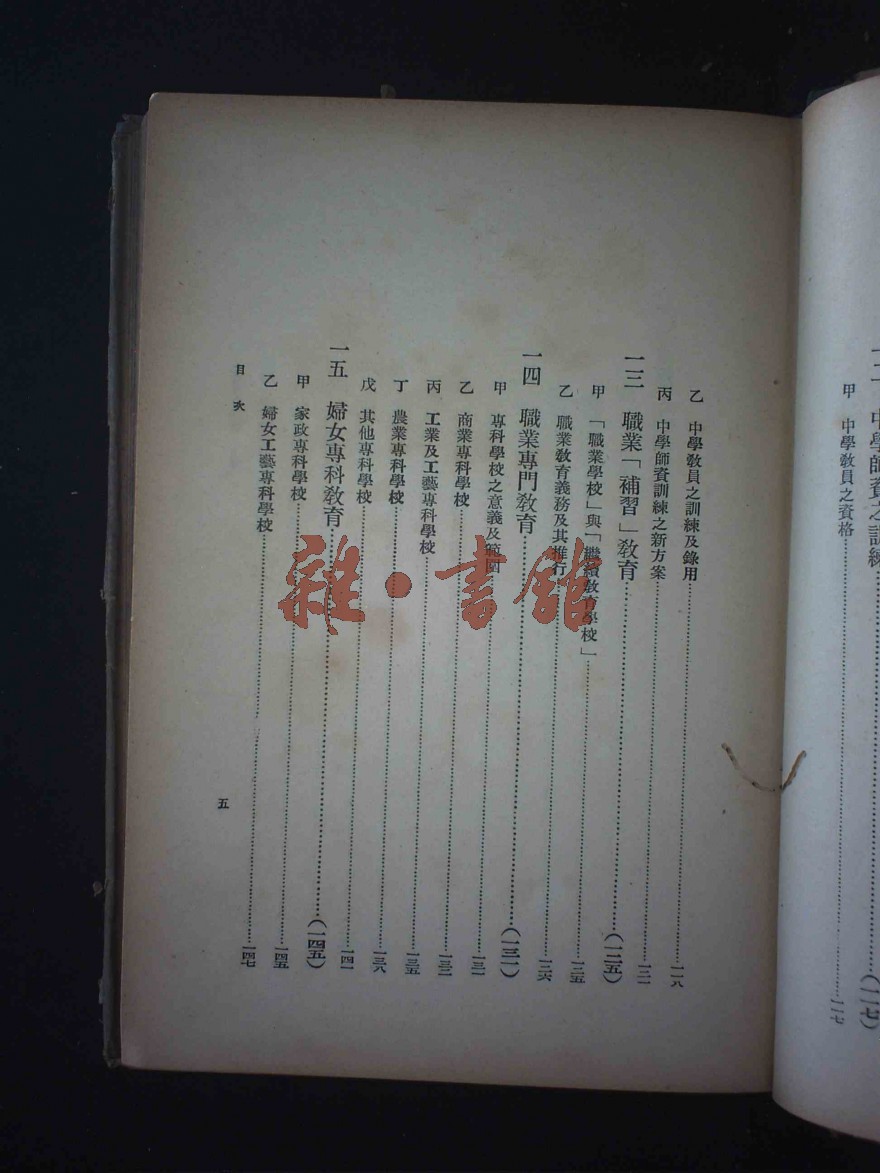 一二 中學師資之訓練……(一一七)
甲 中學教員之資格……一一七
乙 中學教員之訓練及錄用……一一八
丙 中學師資訓練之新方案……一二一
一三 職業「補習」教育……(一二五)
甲 「職業學校」與「繼續教育學校」……一二五
乙 職業教育義務及其推行……一二六
一四 職業專門教育……(一三一)
甲 專科學校之意義及範圍……一三一
乙 商業專科學校……一三一
丙 工業及工藝專科學校……一三二
丁 農業專科學校……一三五
戊 其他專科學校……一三八
一五 婦女專科教育……(一四五)
甲 家政專科學校……一四五
乙 婦女工藝專科學校……一四七
目次
五
雜·書館